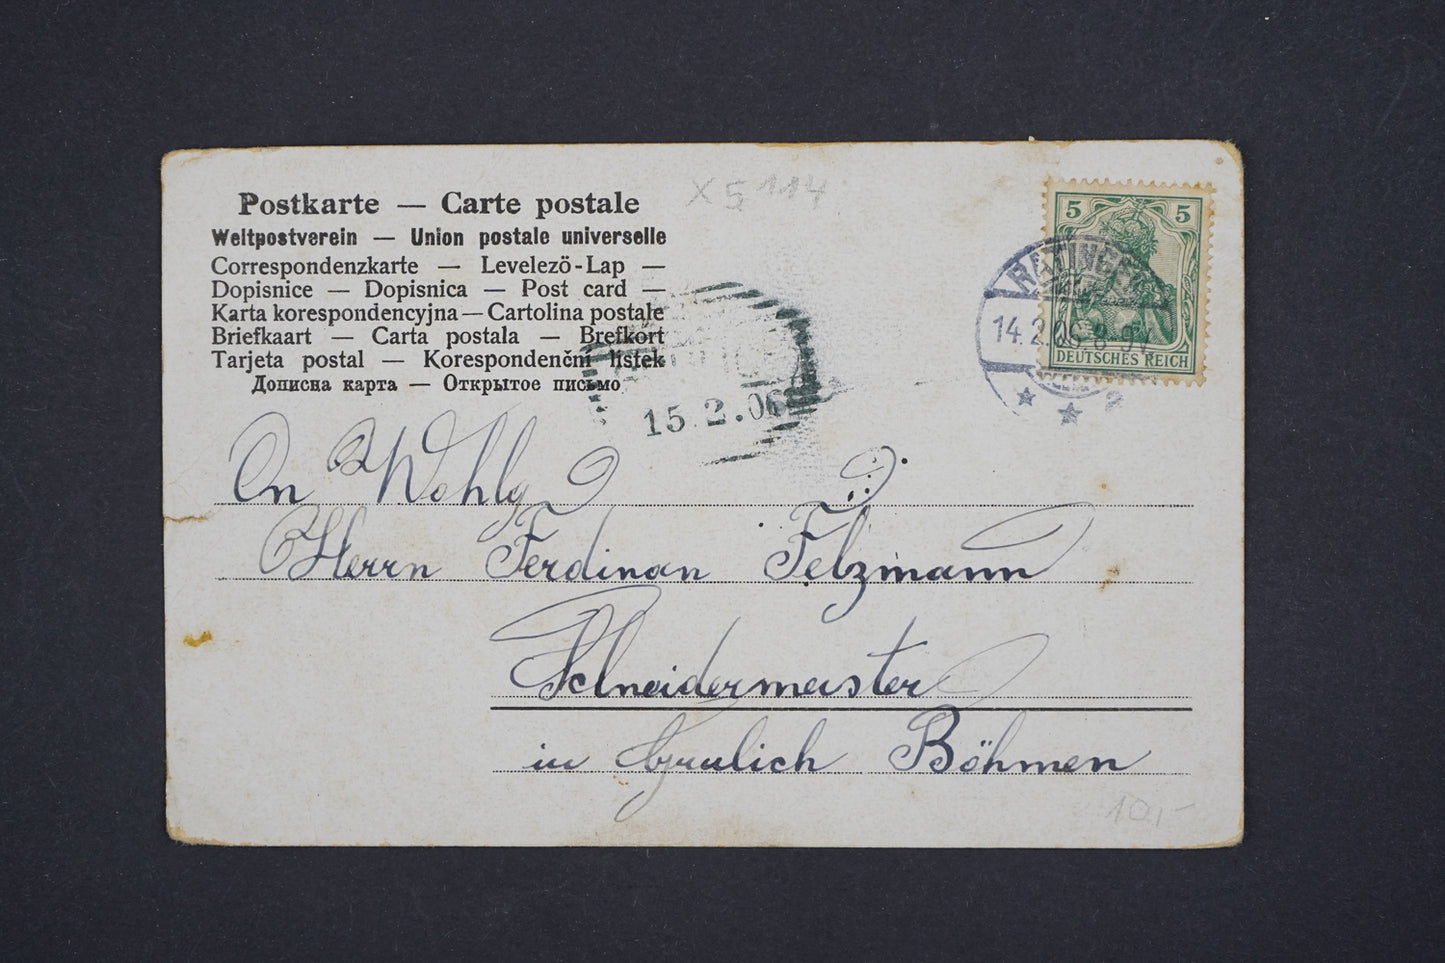 Postkarte — Carte postale
Weltpostverein — Union postale universelle
Correspondenzkarte — Levelező-Lap —
Dopisnice — Dopisnica — Post card —
Karta korespondencyjna — Cartolina postale
Briefkaart — Carta postala — Brefkort
Tarjeta postal — Korespondenční lístek
Дописна карта — Открытое письмо
X5114
5 5
DEUTSCHES REICH
RATINGEN
14.2.06 8-9V
15.2.06
An Wohlg
Herrn Ferdinan Felzmann
Schneidermeister
in Grulich Böhmen
10,-